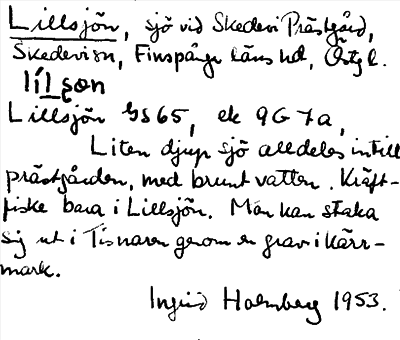 Lillsjön, sjö vid Skedevi Prästgård,
Skedevi sn, Finspånga läns hd, Östg l.
lílsǫn
Lillsjön GS65, ek 9G7a,
Liten djup sjö alldeles intill
prästgården, med brunt vatten. Kräft-
fiske bara i Lillsjön. Man kan staka
sig ut i Tisnaren genom en grav i kärr-
mark.
Ingrid Holmberg 1953.